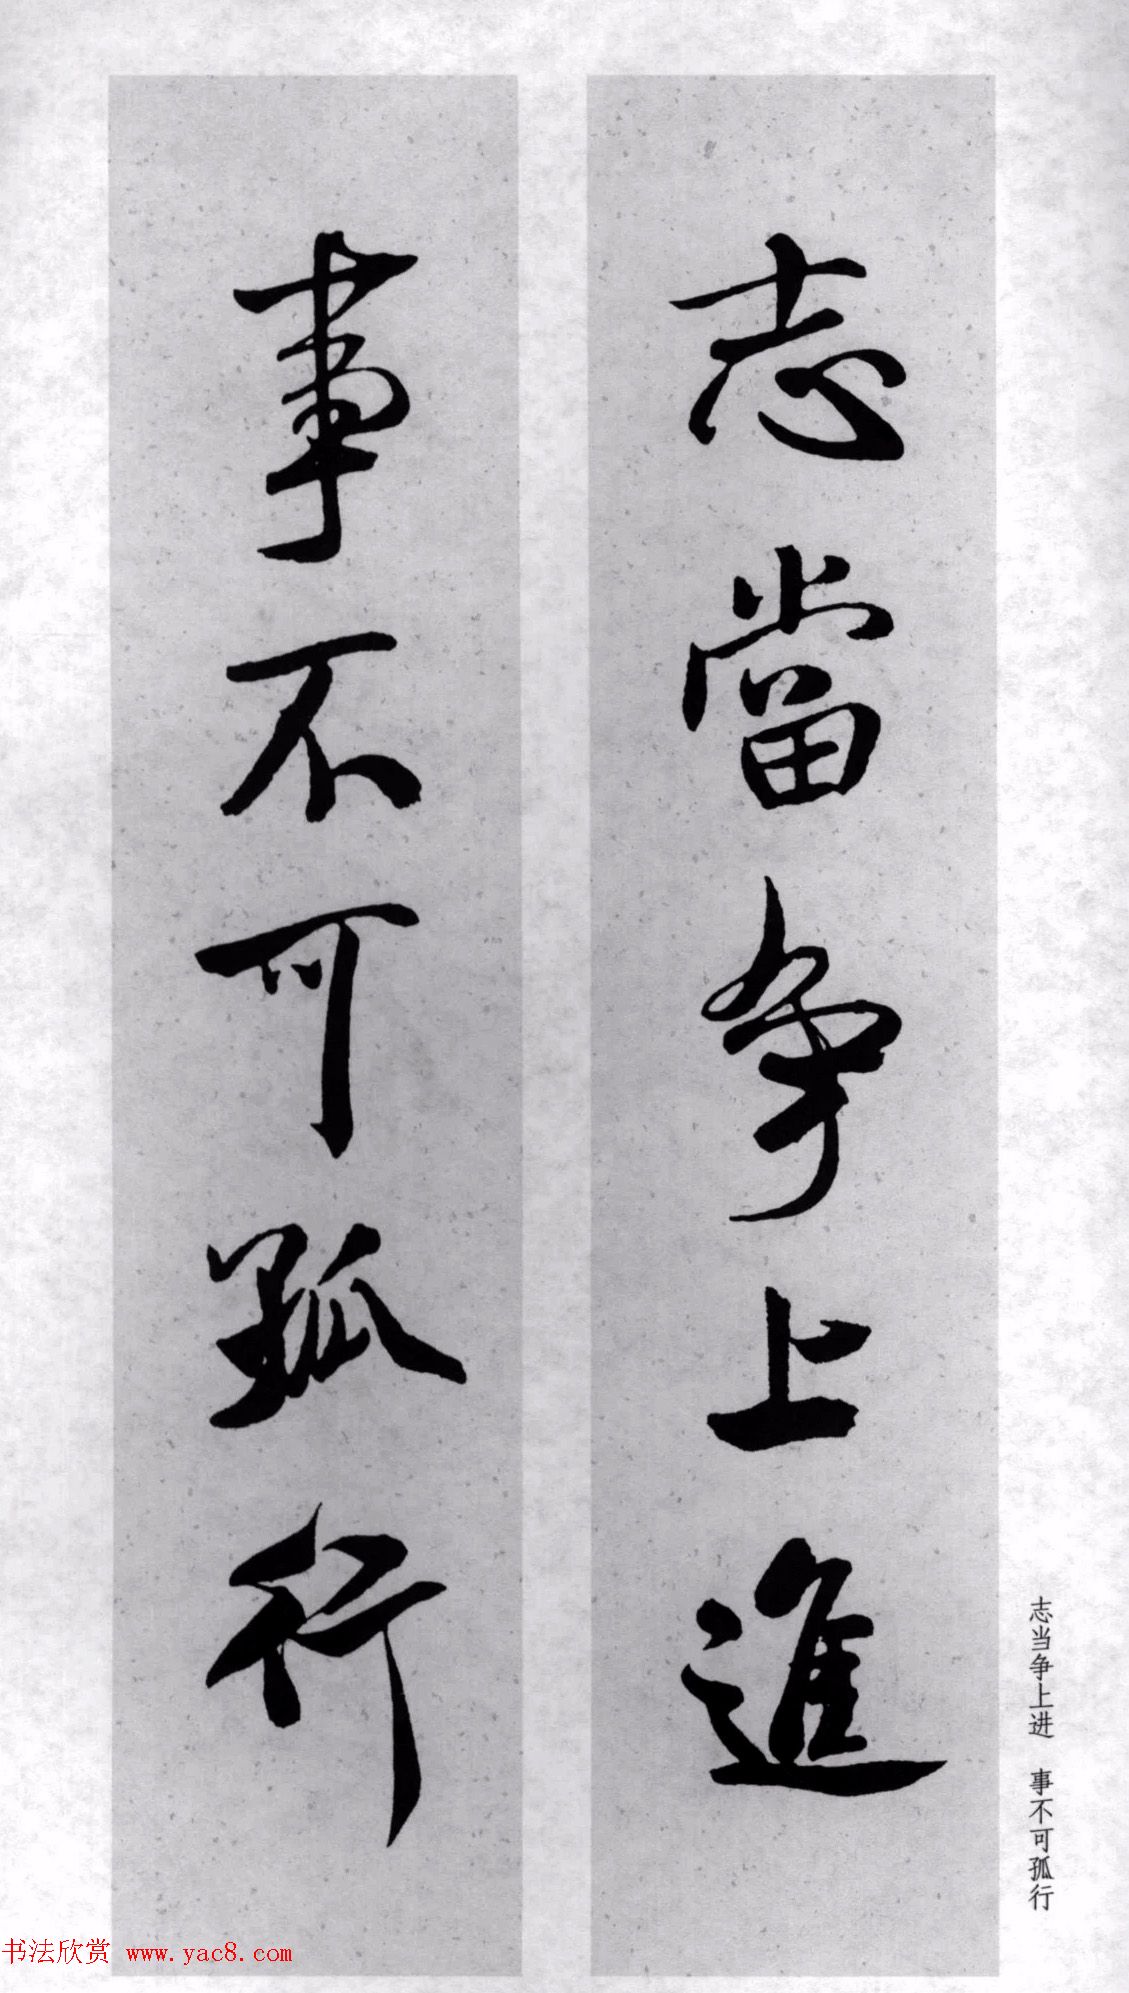 志當争上進
事不可孤行
志当争上进　事不可孤行
书法欣赏 www.yac8.com